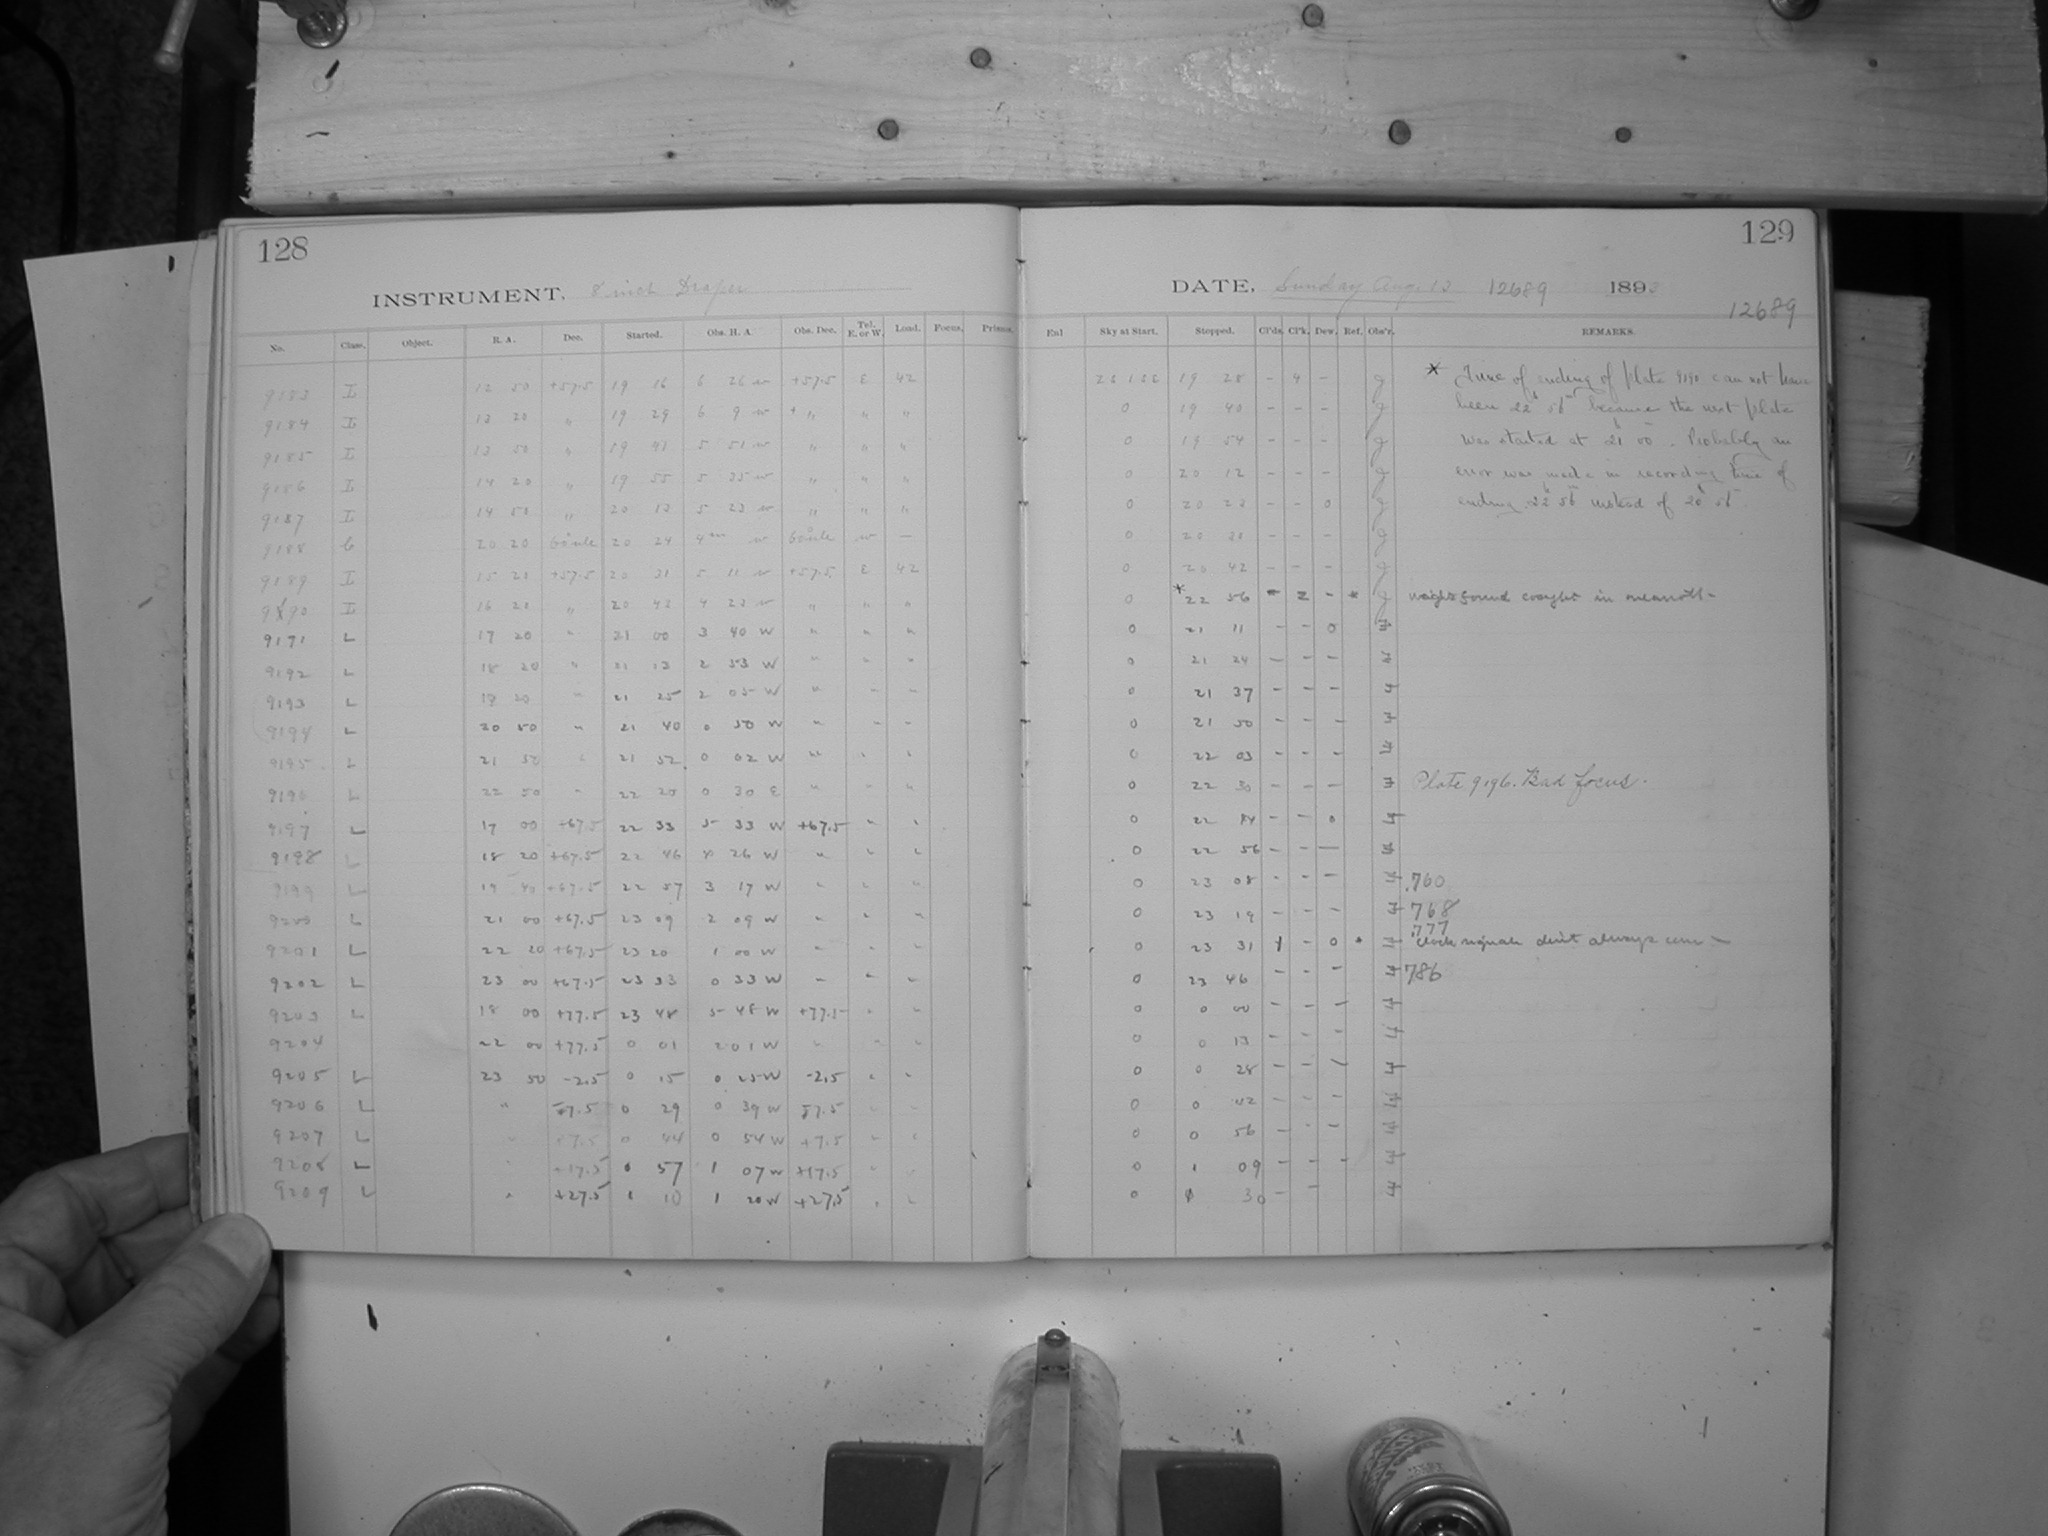 128
INSTRUMENT. 8 inch Draper
No. Class. Object. R. A. Dec. Started. Obs. H. A. Obs. Dec. Tel. E. or W. Load. Focus. Prisms.
9183 I 12 50 +57.5 19 16 6 26 w +57.5 E 42
9184 I 13 20 " 19 29 6 9 w + " " "
9185 I 13 50 " 19 41 5 51 w " " "
9186 I 14 20 " 19 55 5 35 w " " "
9187 I 14 50 " 20 13 5 23 w " " "
9188 6 20 20 20 24 w w —
9189 I 15 20 +57.5 20 31 5 11 w +57.5 E 42
9190 I 16 20 " 20 43 4 23 w " " "
9191 L 17 20 " 21 00 3 40 W " " "
9192 L 18 20 " 21 13 2 53 W " " "
9193 L 19 20 " 21 25 2 05 W " " "
9194 L 20 50 " 21 40 0 50 W " " "
9195 L 21 50 " 21 52 0 02 W " " "
9196 L 22 50 " 22 20 0 30 E " " "
9197 L 17 00 +67.5 22 33 5 33 W +67.5 " "
9198 L 18 20 +67.5 22 46 4 26 W " " "
9199 L 19 40 +67.5 22 57 3 17 W " " "
9200 L 21 00 +67.5 23 09 2 09 W " " "
9201 L 22 20 +67.5 23 20 1 00 W " " "
9202 L 23 00 +67.5 23 33 0 33 W " " "
9203 L 18 00 +77.5 23 48 5 48 W +77.5 " "
9204 22 00 +77.5 0 01 2 01 W " " "
9205 L 23 50 -2.5 0 15 0 25 W -2.5 " "
9206 L " 0 29 0 39 W " "
9207 L " +7.5 0 44 0 54 W +7.5 " "
9208 L " +17.5 0 57 1 07 W +17.5 " "
9209 L " +27.5 1 10 1 20 W +27.5 " "
129
DATE. Sunday Aug. 13 12689 1893
12689
Enl Sky at Start. Stopped. Cl'ds. Cl'k. Dew. Ref. Obs'r. REMARKS.
19 28 - 4 - J * Time of ending of plate 9190 can not have
0 19 40 - - - J been 22h 56m because the next plate
0 19 54 - - - J was started at 21h 00m. Probably an
0 20 12 - - - J error was made in recording time of
0 20 23 - - 0 J ending 22h 56m instead of 20h 56m
0 20 30 - - - J
0 20 42 - - - J
0 * 22 56 - 2 - * J weight found caught in
0 21 11 - - 0
0 21 24 - - -
0 21 37 - - -
0 21 50 - - -
0 22 03 - - -
0 22 30 - - - Plate 9196. Bad focus.
0 22 44 - - 0
0 22 56 - - —
0 23 08 - - - .760
0 23 19 - - - 768
.777
0 23 31 1 - 0 * clock signals don't always come
0 23 46 - - - 786
0 0 00 - - -
0 0 13 - - -
0 0 28 - - -
0 0 42 - - -
0 0 56 - - -
0 1 09 - - -
0 30 - -